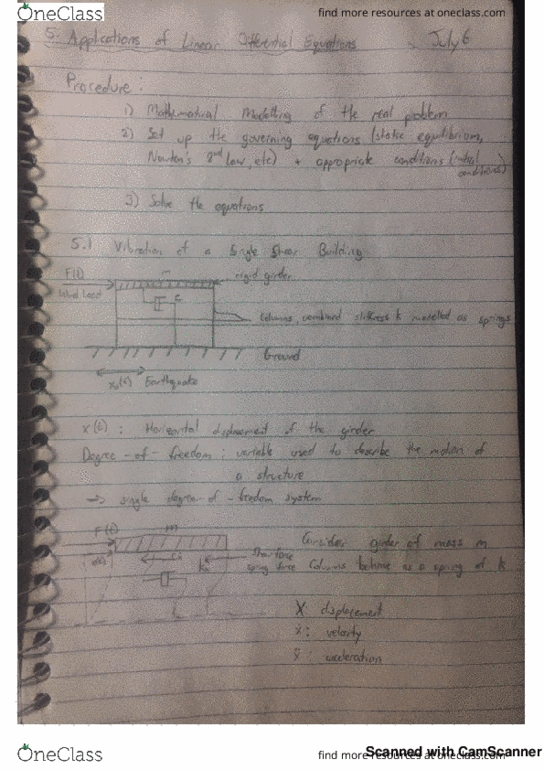 OneClass
find more resources at oneclass.com
5. Applications of Linear Differential Equations
July 6
Procedure:
1) Mathematical Modelling of the real problem
2) Set up the governing equations (static equilibrium,
Newton's 2nd Law, etc) + appropriate conditions (initial
conditions)
3) Solve the equations
5.1 Vibration of a Single Shear Building
F(t)
m
rigid girder
Wind Load
c
Columns, combined stiffness k modelled as springs
Ground
x₀(t) Earthquake
x(t): Horizontal displacement of the girder
Degree-of-freedom: variable used to describe the motion of
a structure
→ single degree-of-freedom system
F(t)
m
Consider girder of mass m
Shear force
spring force
Columns behave as a spring of k
X: displacement
ẋ: velocity
ẍ: acceleration
OneClass
find more resources at oneclass.com
Scanned with CamScanner